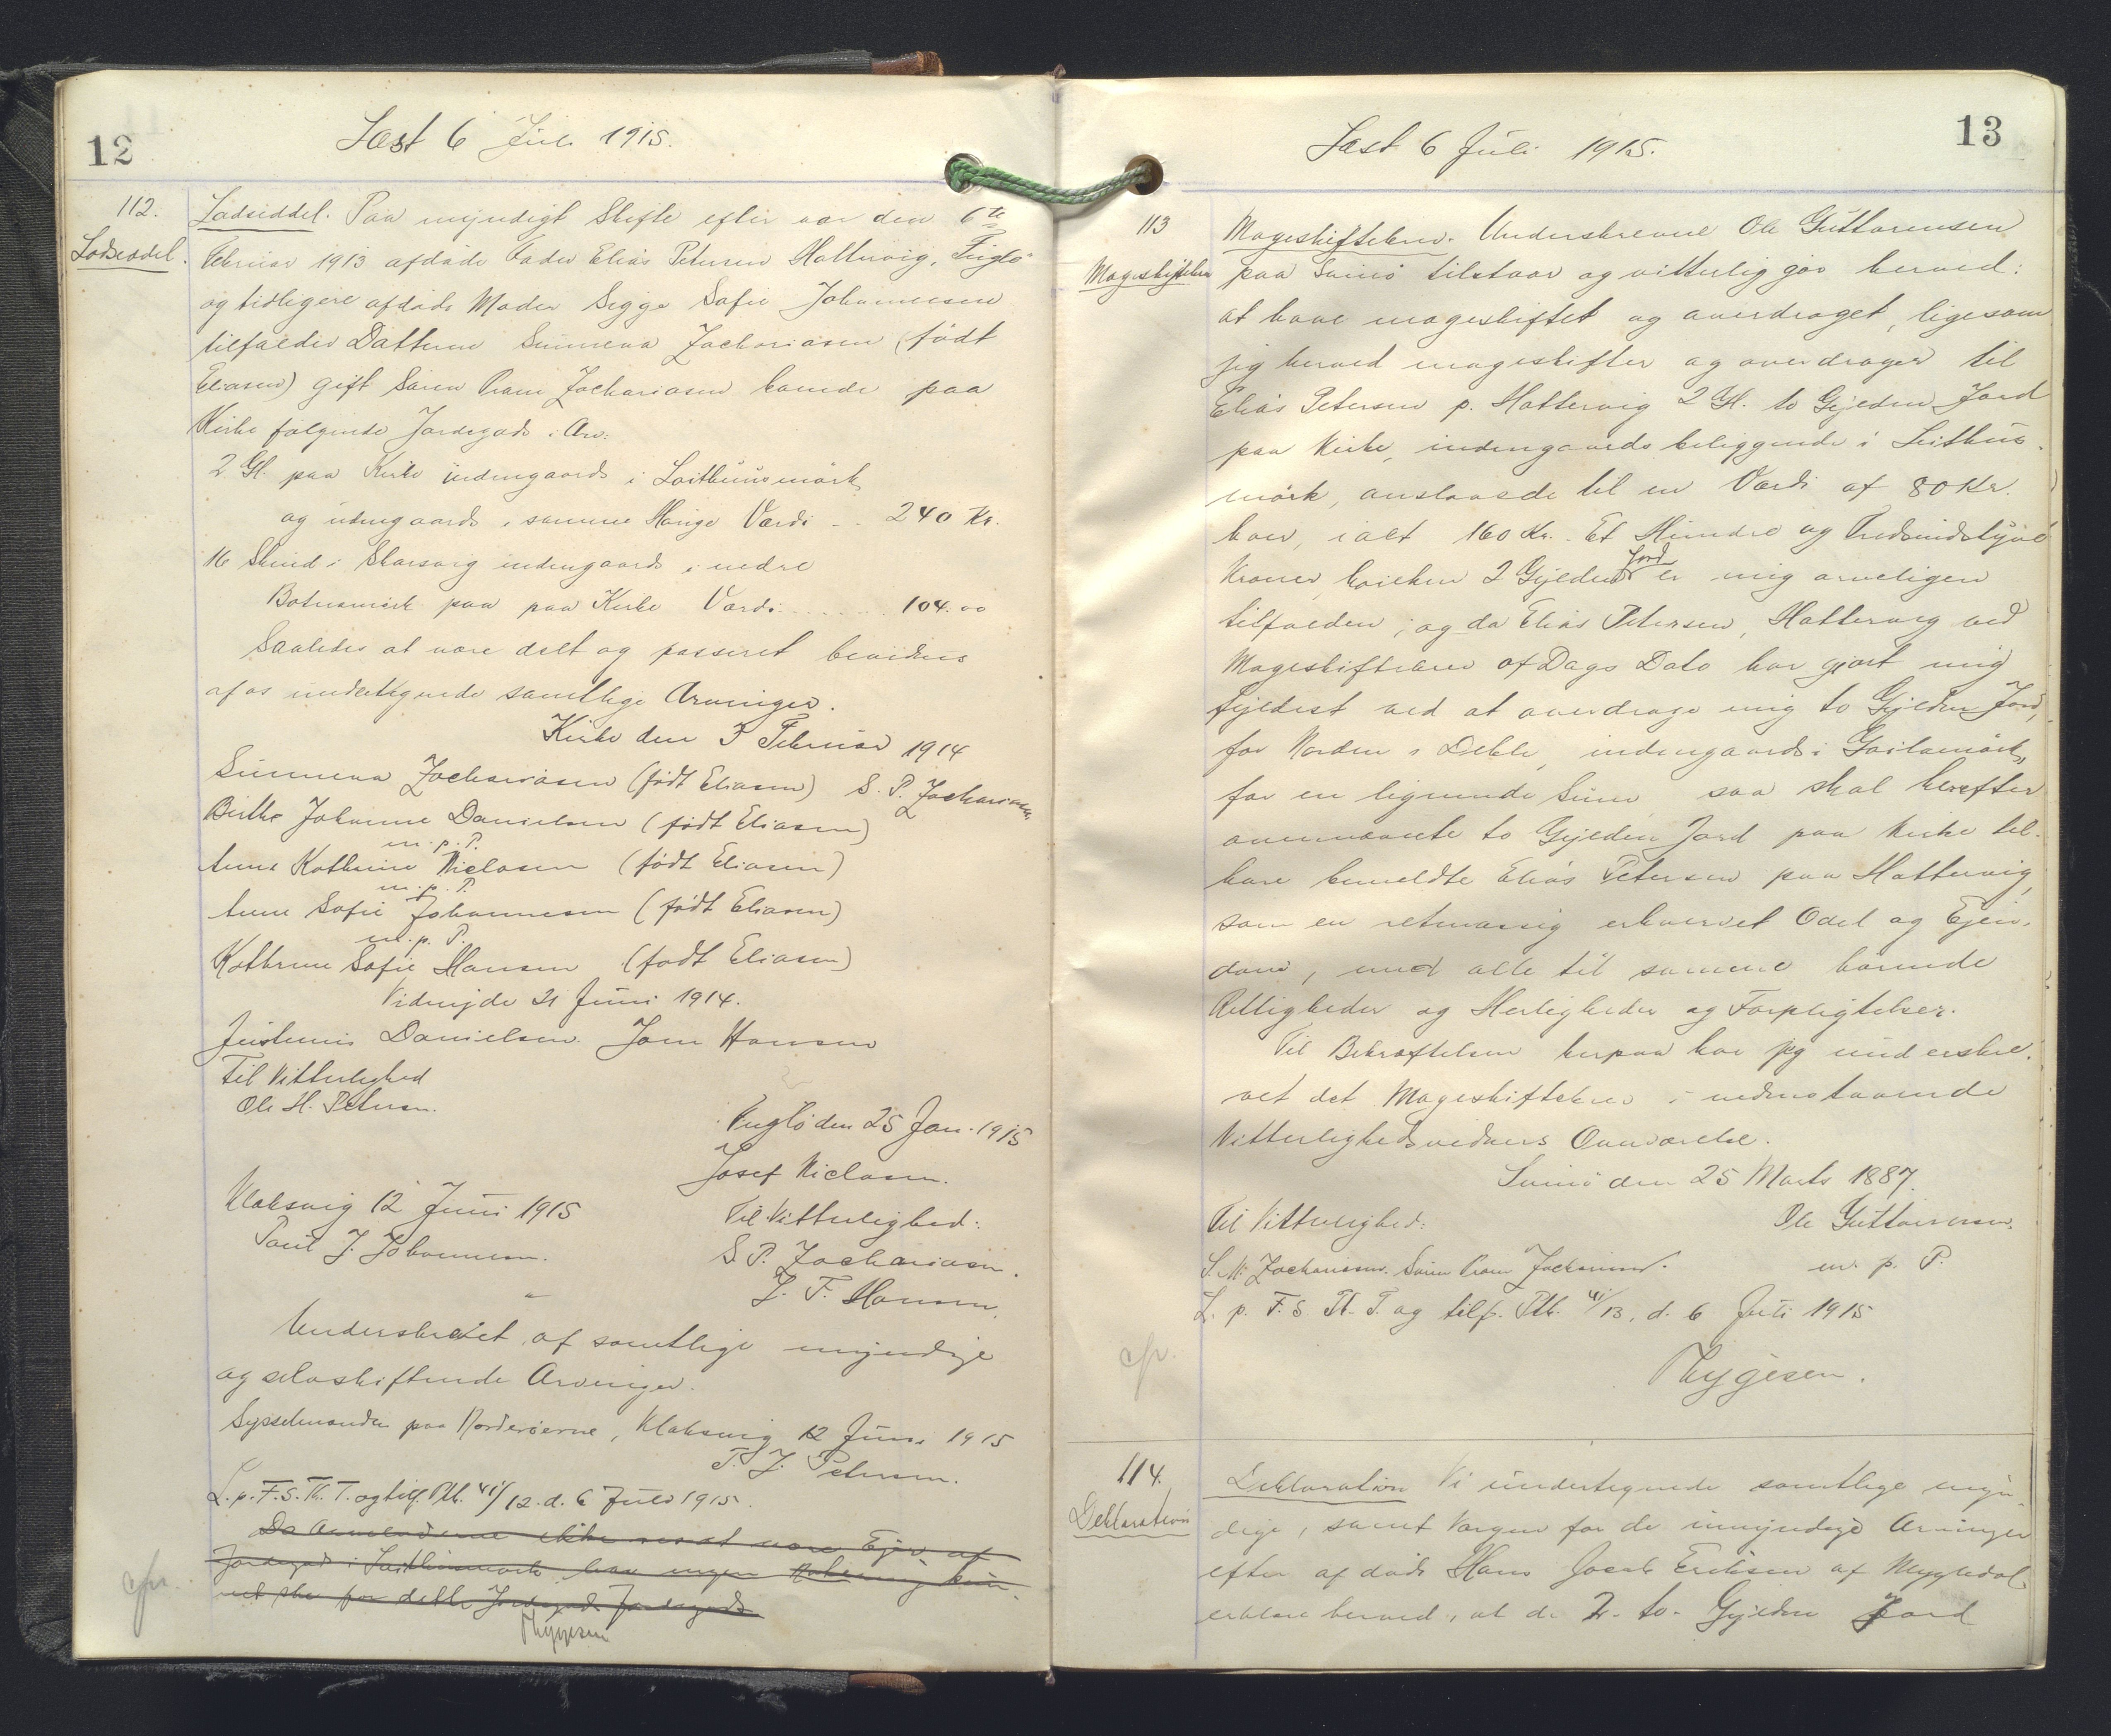 12
Læst 6 Juli 1915.
112.
Lodseddel.
Lodseddel. Paa myndigt Skifte efter vor den 6te
Februar 1913 afdøde Fader Elias Petersen Hattervig, Fuglø
og tidligere afdøde Moder Sigge Sofie Johannesen
tilfalder Datteren Sunneva Zachariasen (født
Eliasen) gift Søren Pram Zachariasen boende paa
Kirke følgende Jordegods i Arv:
2 Gl. paa Kirke indengaards i Leithuusmørk
og udengaards i samme Hauge Værdi .. 240 Kr.
16 Skind i Skarsvig indengaards i nedre
Botnsmørk paa paa Kirke Værdi ....... 104.00
Saaledes at være delt og passeret bevidnes
af os undertegnede samtlige Arvinger.
Kirke den 3 Februar 1914
Sunneva Zachariasen (født Eliasen) S. P. Zachariasen
Birthe Johanne Danielsen (født Eliasen)
m. p. P.
Anna Kathrine Niclasen (født Eliasen)
m. p. P.
Anne Sofie Johannesen (født Eliasen)
m. p. P.
Kathrine Sofie Hansen (født Eliasen)
Viderejde 21 Juni 1914.
Justinus Danielsen. Joen Hansen
Til Vitterlighed
Ole H. Petersen.
Fuglø den 25 Jan. 1915
Josef Niclasen.
Klaksvig 12 Juni 1915
Til Vitterlighed:
Poul J. Johannesen.
S. P. Zachariasen.
J. F. Hansen.
Underskrevet af samtlige myndige
og selvskiftende Arvinger.
Sysselmanden paa Norderøerne, Klaksvig 12 Juni 1915
T. J. Petersen.
L. p. F. S. Th. T. og tilf. Ptb. VI/12. d. 6 Juli 1915.
Da Arveladerne ikke vides at være Ejer af
Jordegods i Leithusmørk kan ingen Notering kun-
net ske for dette Jordegods
Thygesen
cfr.
13
Læst 6 Juli 1915.
113
Mageskiftebrev
Mageskiftebrev. Underskrevne Ole Guttormsen
paa Svinø tilstaar og vitterlig gør herved:
at have mageskiftet og overdraget, ligesom
jeg herved mageskifter og overdrager til
Elias Petersen p. Hattervig 2 Gl. to Gylden Jord
paa Kirke, indengaards beliggende i Leithus-
mørk, anslaaede til en Værdi af 80 Kr.
hver, ialt 160 Kr. Et Hundre og Tredsindstyve
Kroner, hvilken 2 Gylden Jord er mig arveligen
tilfalden; og da Elias Petersen, Hattervig ved
Mageskiftebrev af Dags Dato har gjort mig
fyldest ved at overdrage mig to Gylden Jord,
for Norden i Deble, indengaards i Gerlamørk,
for en lignende Sum saa skal herefter
ovennævnte to Gylden Jord paa Kirke til-
høre bemeldte Elias Petersen paa Hattervig,
som en retmæssig erhvervet Odel og Ejen-
dom, med alle til samme hørende
Rettigheder og Herligheder og Forpligtelser.
Til Bekræftelsen herpaa har jeg underskre-
vet det Mageskiftebrev i nedenstaaende
Vitterlighedsvidners Overværelse.
Svinø den 25 Marts 1887.
Til Vitterlighed:
Ole Guttormsen.
S. M. Zachariasen. Søren Pram Zachariasen.
m. p. P.
L. p. F. S. Th. T. og tilf. Ptb. VI/13, d. 6 Juli 1915
Thygesen.
cfr.
114.
Deklaration
Deklaration Vi undertegnede samtlige myn-
dige, samt Værgen for de umyndige Arvinger
efter afdøde Hans Jacob Eriksen af Mygledal
erklære herved, at de 2. to. Gylden Jord